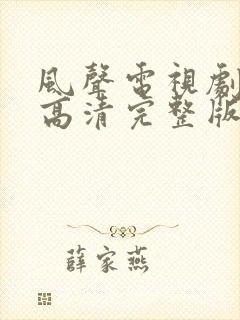 風聲電視劇
高清完整版
薛家燕